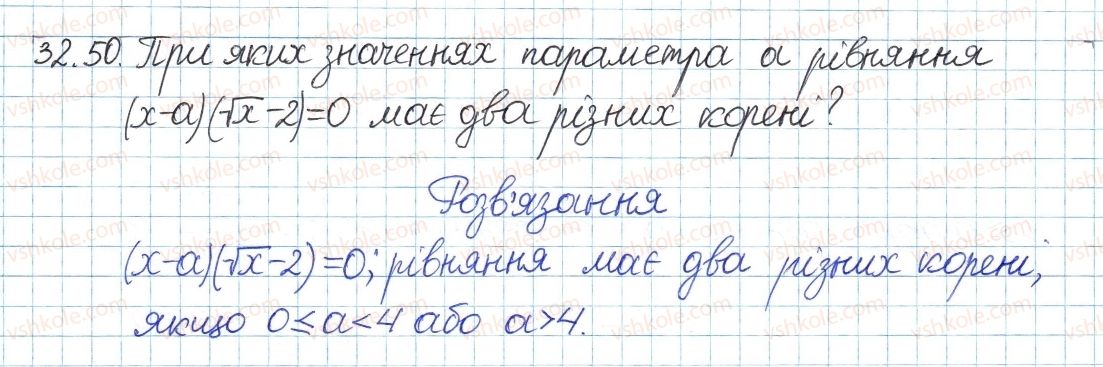 32.50. При яких значеннях параметра a рівняння
(x-a)(√x-2)=0 має два різних корені?
Розв'язання
(x-a)(√x-2)=0; рівняння має два різних корені,
якщо 0≤a<4 або a>4.